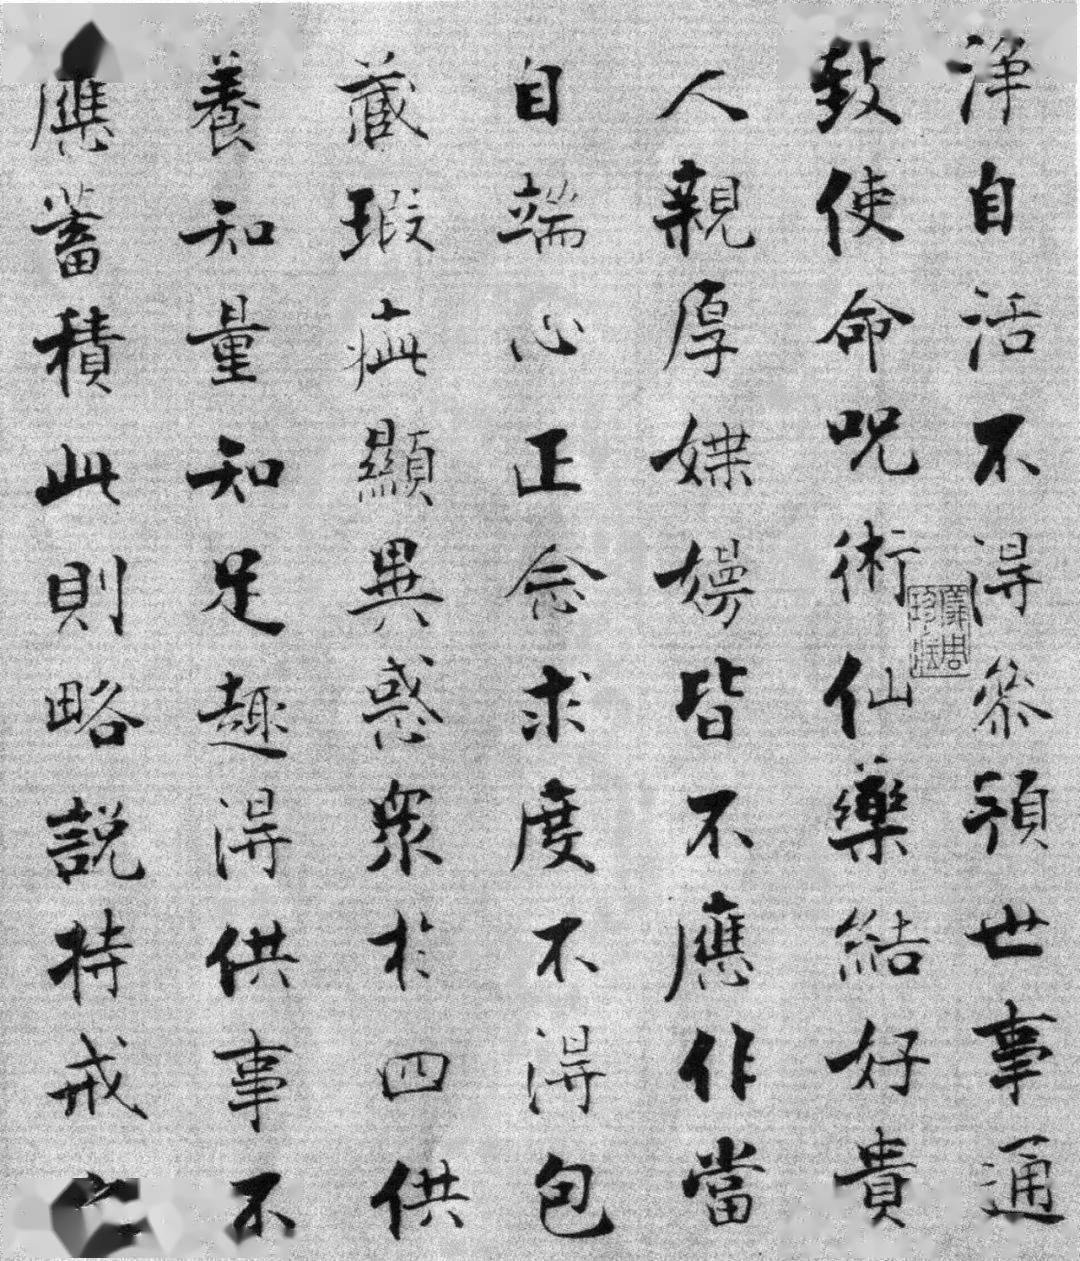 淨自活不得叅預世事通
致使命呪術仙藥結好貴
人親厚媟嫚皆不應作當
自端心正念求度不得包
藏瑕疵顯異惑眾於四供
養知量知足趣得供事不
應蓄積此則略說持戒之